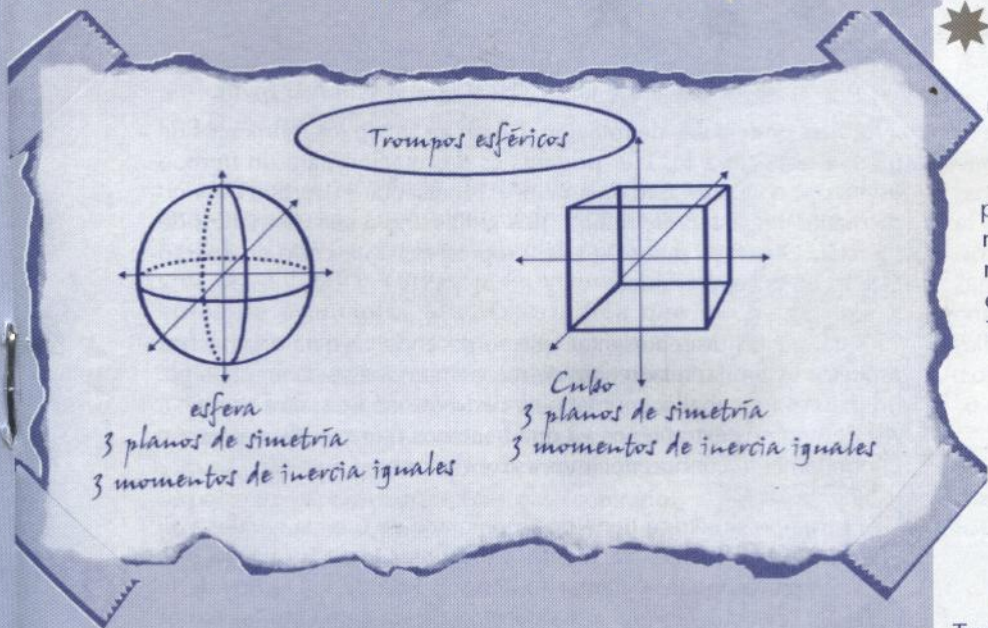 Trompos esféricos
esfera
3 planos de simetría
3 momentos de inercia iguales
Cubo
3 planos de simetría
3 momentos de inercia iguales